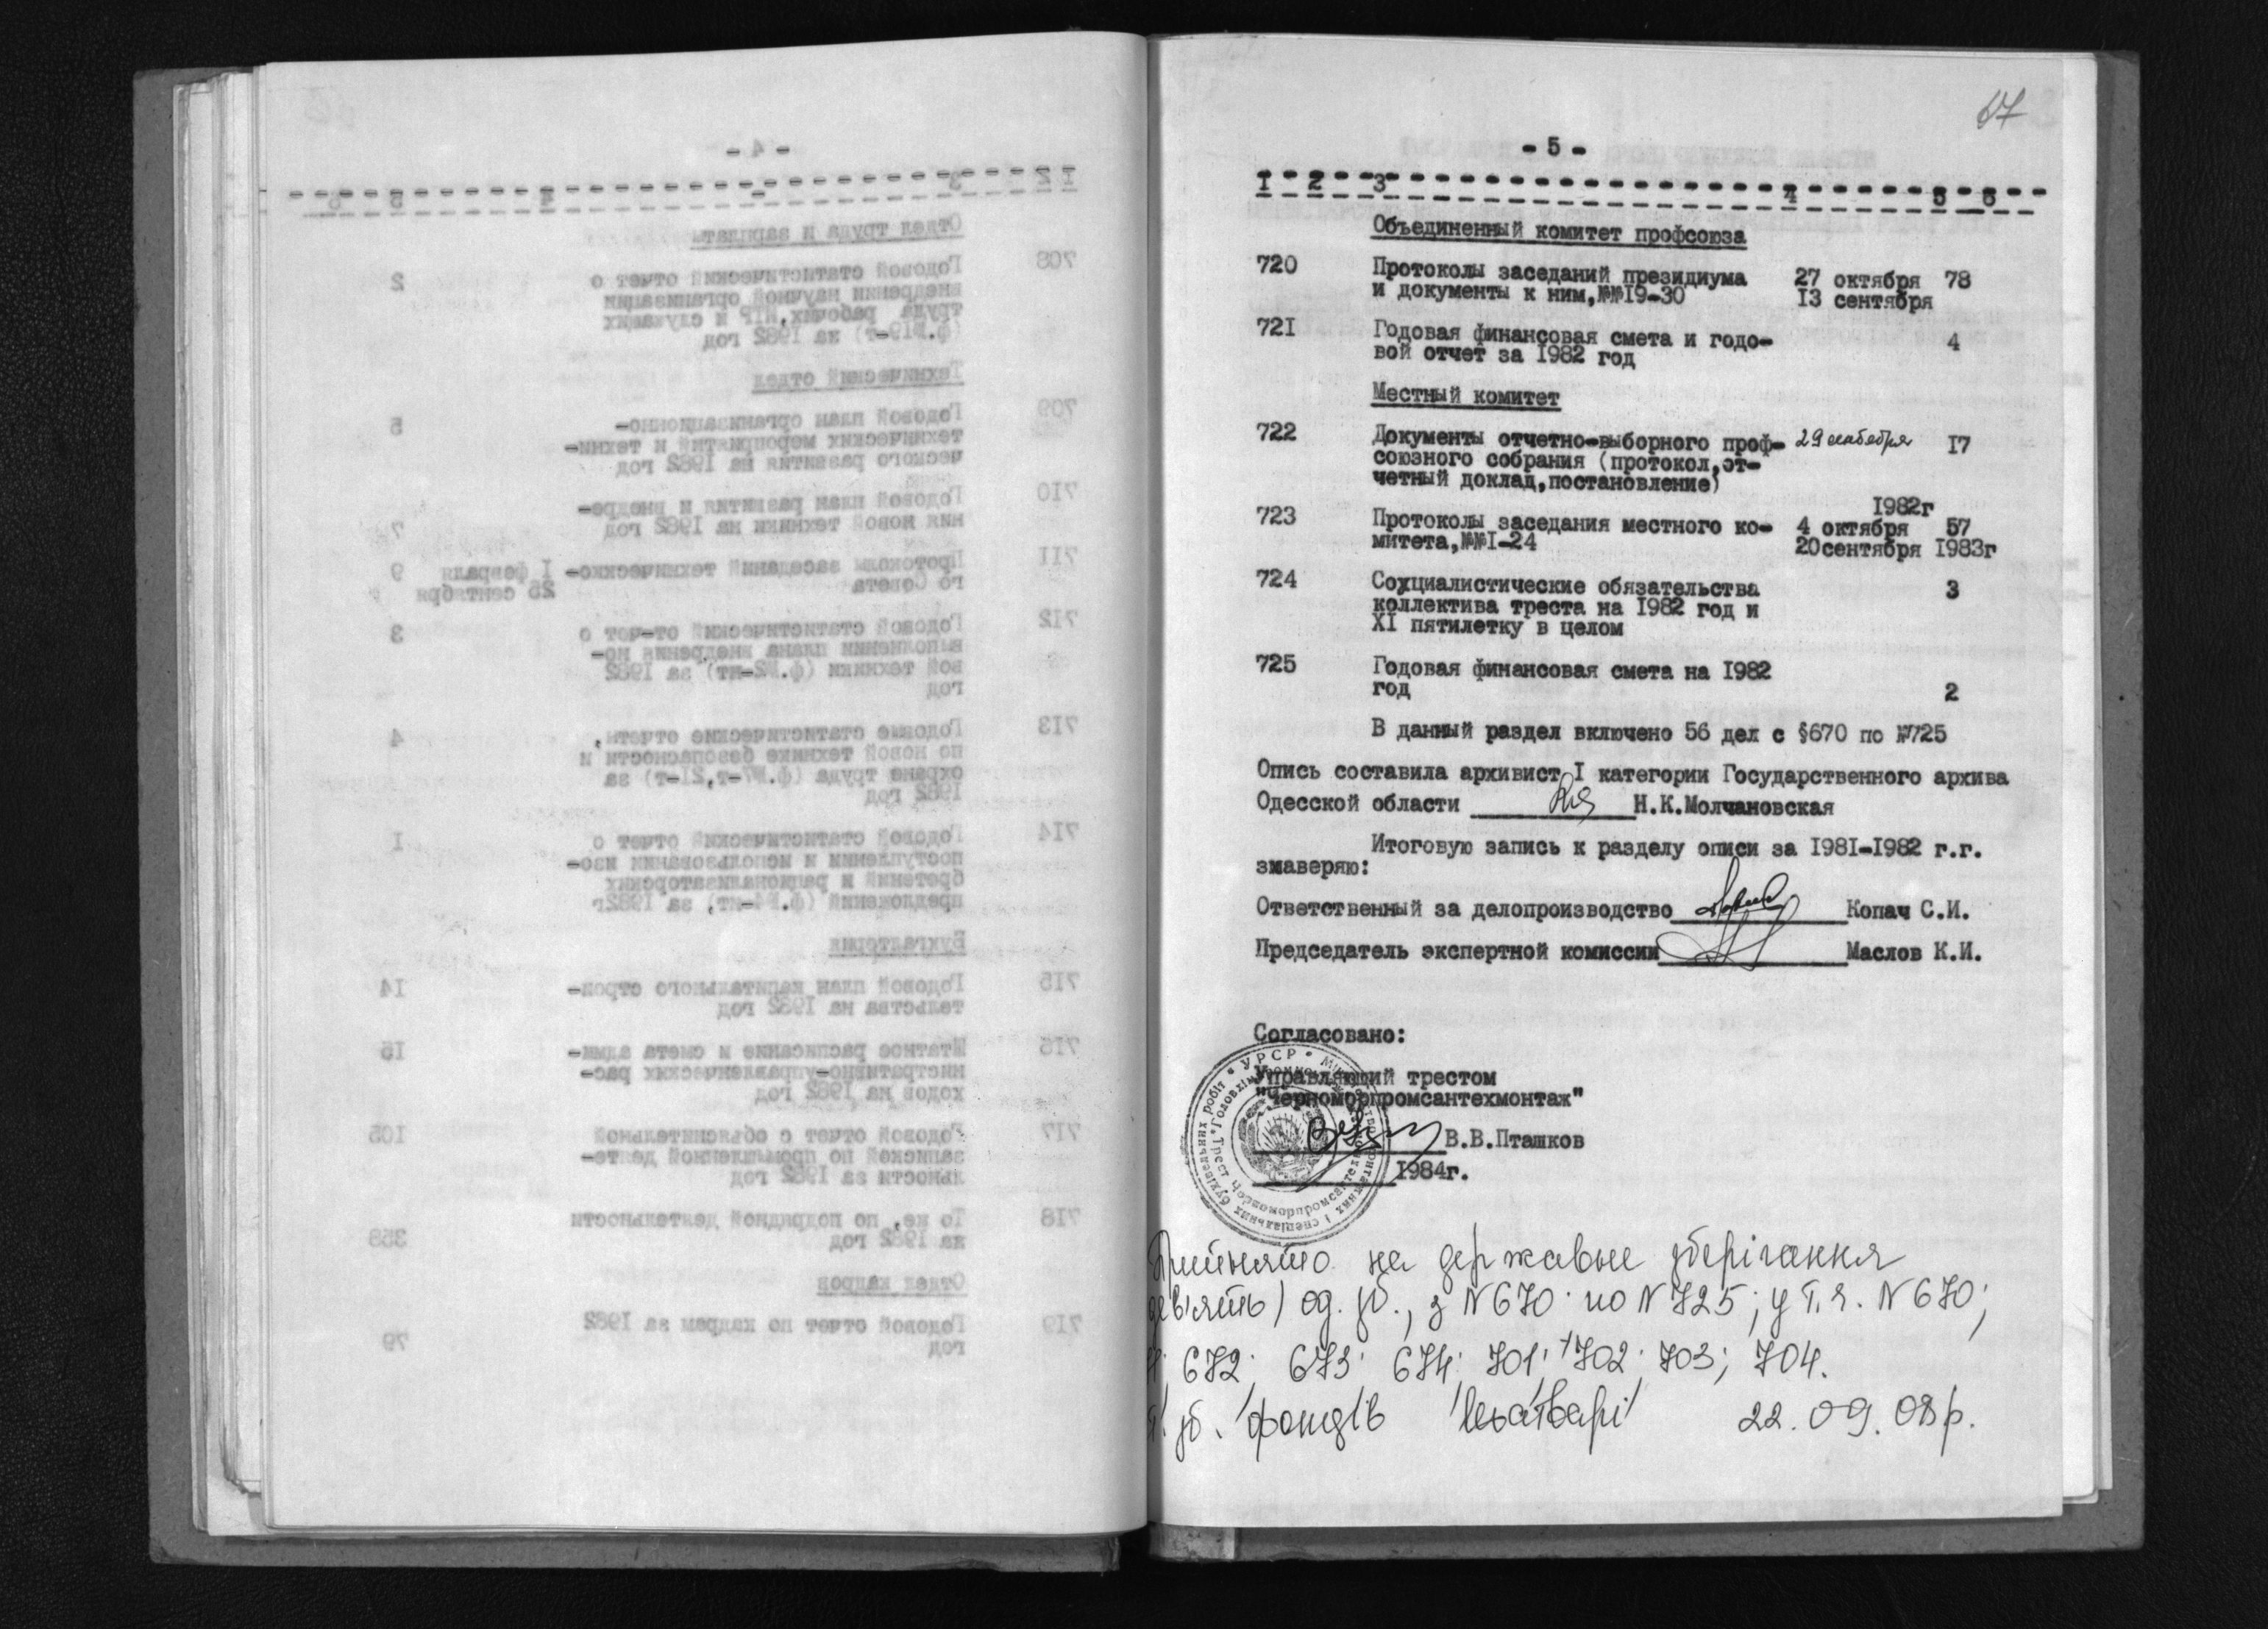 67
- 5 -
I 2 3 4 5 6
Объединенный комитет профсоюза
720 Протоколы заседаний президиума 27 октября 78
и документы к ним,№№19-30 13 сентября
721 Годовая финансовая смета и годо-
вой отчет за 1982 год 4
Местный комитет
722 Документы отчетно-выборного проф- 29 17
союзного собрания (протокол,от-
четный доклад,постановление)
1982г
723 Протоколы заседания местного ко- 4 октября 57
митета,№№I-24 20сентября 1983г
724 Сохциалистические обязательства 3
коллектива треста на 1982 год и
XI пятилетку в целом
725 Годовая финансовая смета на 1982
год 2
В данный раздел включено 56 дел с §670 по №725
Опись составила архивист I категории Государственного архива
Одесской области Н.К.Молчановская
Итоговую запись к разделу описи за 1981-1982 г.г.
змаверяю:
Ответственный за делопроизводство Копач С.И.
Председатель экспертной комиссии Маслов К.И.
Согласовано:
Управляющий трестом
"Черноморпромсантехмонтаж"
В.В.Пташков
1984г.
Прийнято на державне зберігання
дев'ять) од. зб., з №670 по №725; у т.ч. №670;
672; 673; 674; 701; 702; 703; 704.
зб. фондів 22.09.08р.
- 4 -
I 2 3 4 5 6
Отдел труда и зарплаты
708 Годовой статистический отчет о 2
внедрении научной организации
труда рабочих,ИТР и служащих
(ф.№19-т) на 1982 год
Технический отдел
709 Годовой план организационно- 5
технических мероприятий и техни-
ческого развития на 1982 год
710 Годовой план развития и внедре-
ния новой техники на 1982 год 7
711 Протоколы заседаний техническо- I февраля 9
го Совета 25 сентября
712 Годовой статистический от-чет о 3
выполнении плана внедрения но-
вой техники (ф.№2-нт) за 1982
год
713 Годовые статистические отчеты, 4
по новой технике безопасности и
охране труда (ф.№7-т,21-т) за
1982 год
714 Годовой статистический отчет о I
поступлении и использовании изо-
бретений и рационализаторских
предложений (ф.№4-нт), за 1982г
Бухгалтерия
715 Годовой план капитального строи- 14
тельства на 1982 год
716 Штатное расписание и смета адми- 16
нистративно-управленческих рас-
ходов на 1982 год
717 Годовой отчет с объяснительной 105
запиской по промышленной деяте-
льности за 1982 год
718 То же, по подрядной деятельности
на 1982 год 358
Отдел кадров
719 Годовой отчет по кадрам за 1982
год 79